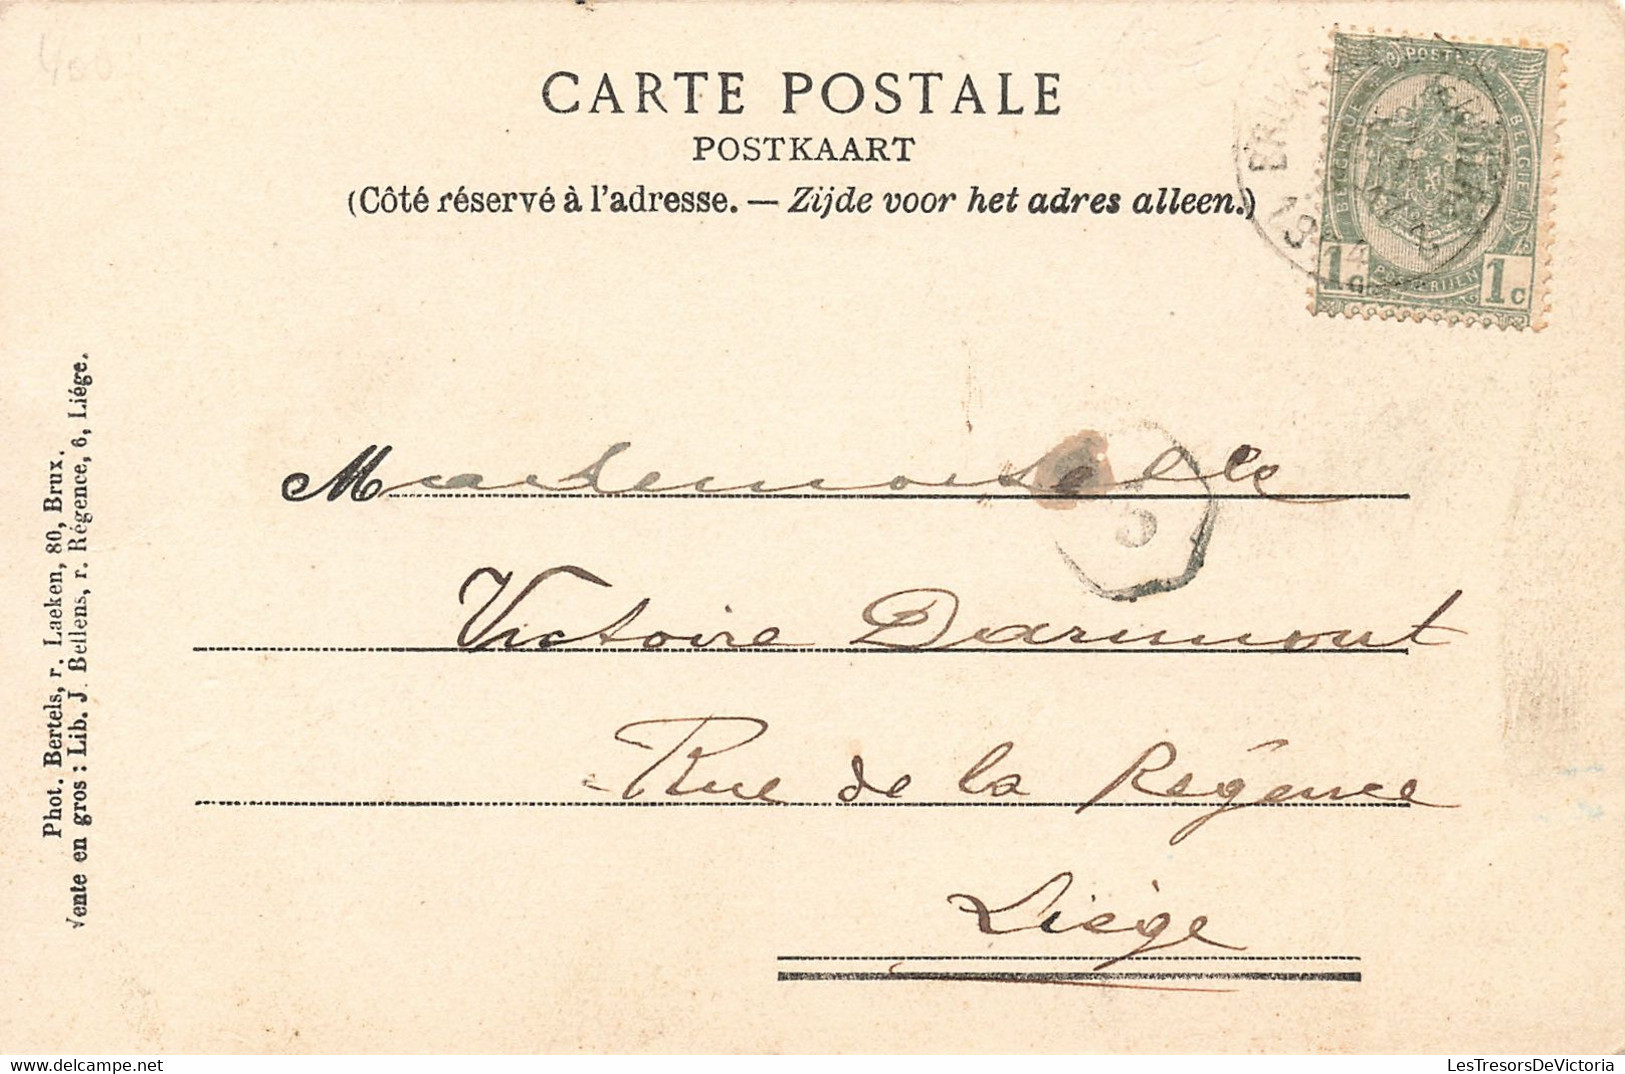 CARTE POSTALE
POSTKAART
(Côté réservé à l'adresse. — Zijde voor het adres alleen.)
POSTES
BELGIQUE
BELGIË
1c 1c
Mademoiselle
5
Victoire Darimont
Rue de la Régence
Liège
Phot. Bertels, r. Laeken, 80, Brux.
Vente en gros : Lib. J. Bellens, r. Régence, 6, Liége.
400
LesTresorsDeVictoria
delcampe.net